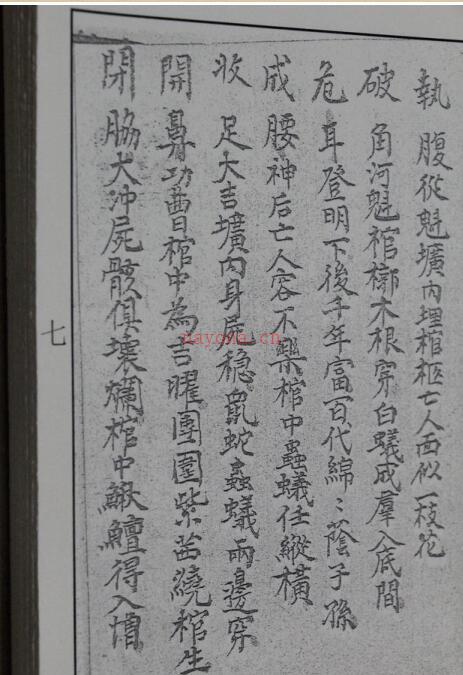 執　腹從魁壙內埋棺柩亡人面似一枝花
破　角河魁棺槨木根穿白蟻成羣入底間
危　耳登明下後千年富百代綿〻蔭子孫
成　腰神后亡人容不樂棺中蟲蟻任縱橫
收　足大吉壙內身屍穩鼠蛇蟲蟻兩邊穿
開　鼻功曹棺中為吉曜團圓紫茁繞棺生
閉　脇大冲屍骸俱壞爛棺中鰍鱣得入增
七
nayona.cn